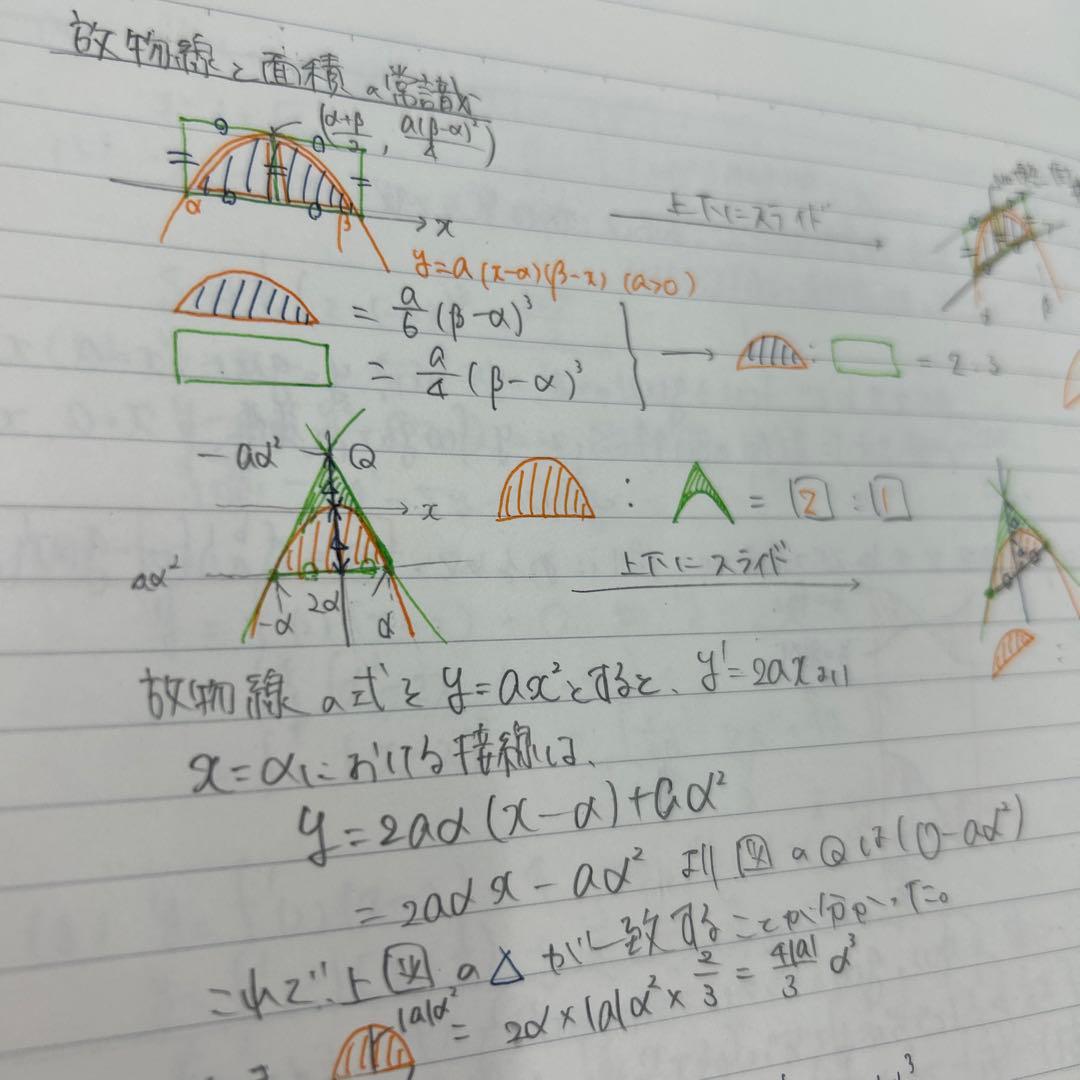 放物線と面積の常識
(α+β/2, a(β-α)²/4)
α β x
上下にスライド
y=a(x-α)(β-x) (a>0)
= a/6 (β-α)³
= a/4 (β-α)³
→ : = 2:3
-aα² Q
x
: = 2 : 1
aα²
上下にスライド
-α 2α α
放物線の式を y=ax²とすると、y'=2axより
x=αにおける接線は、
y=2aα(x-α)+aα²
=2aαx-aα² より図のQは(0-aα²)
これで上図の△が一致することが分かった。
|a|α² = 2α×|a|α²×2/3 = 4|a|/3 α³